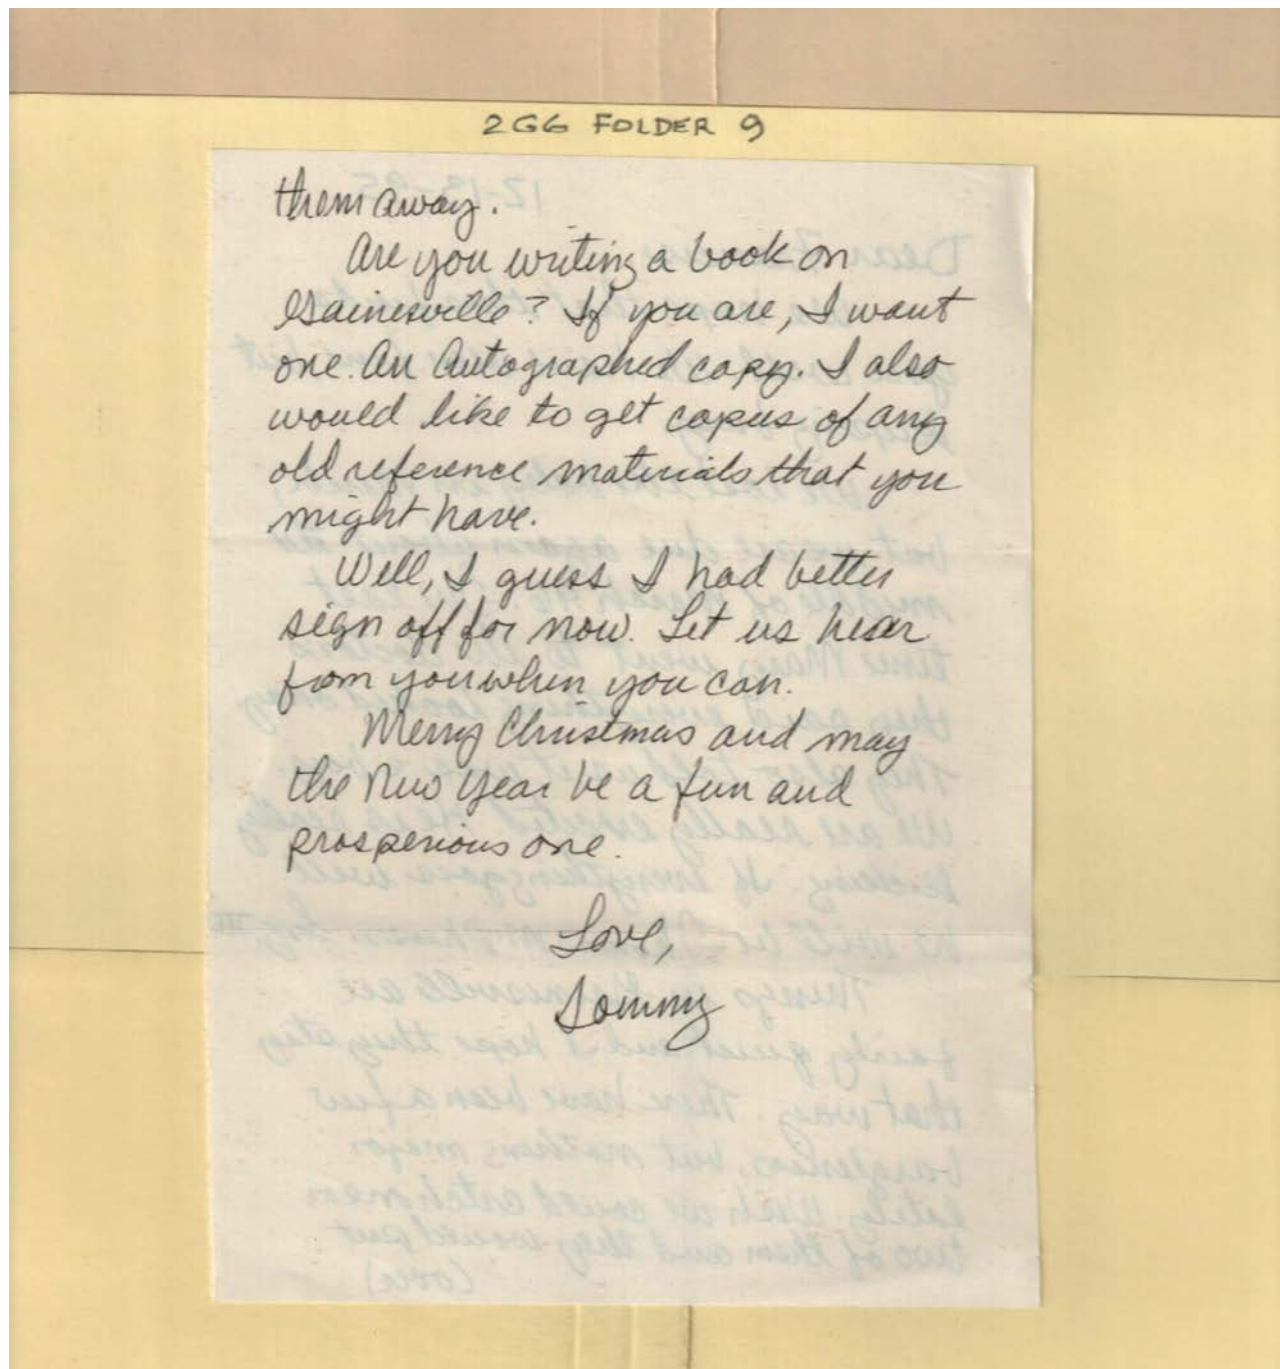 2G6 FOLDER 9
them away.
Are you writing a book on
Gainesville? If you are, I want
one. An Autographed copy. I also
would like to get copies of any
old reference materials that you
might have.
Well, I guess I had better
sign off for now. Let us hear
from you when you can.
Merry Christmas and may
the New Year be a fun and
prosperious one.
Love,
Tommy